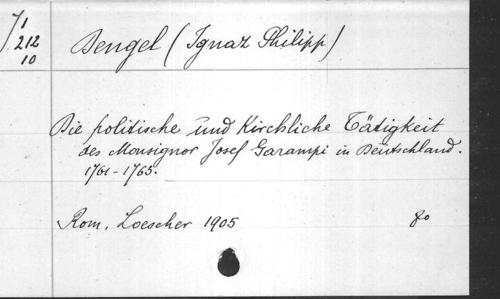 J 1
212
10
Dengel (Ignaz Philipp)
Die politische und Kirchliche Tätigkeit
des Monsignor Josef Garampi in Deutschland.
1761-1765.
Rom, Loescher 1905
8o